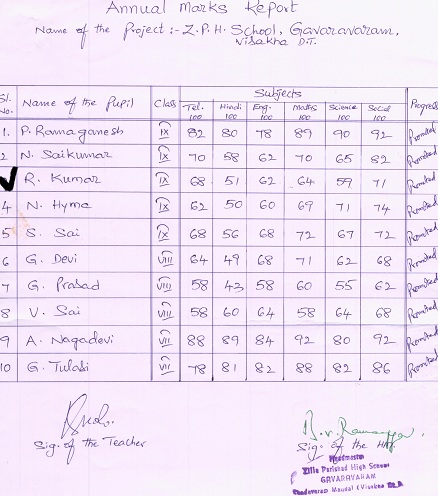 Annual Marks Report
Name of the Project :- Z.P.H. School, Gavaravaram,
Visakha D.T.
Subjects
Sl. No. Name of the Pupil Class Tel. 100 Hindi 100 Eng. 100 Maths 100 Science 100 Social 100 Progress
1. P. Ramaganesh IX 82 80 78 89 90 92 Promoted
2 N. Saikumar IX 70 58 62 70 65 82 Promoted
R. Kumar IX 68 51 62 64 59 71 Promoted
4 N. Hyma IX 62 50 60 69 71 74 Promoted
5 S. Sai IX 68 56 68 72 67 72 Promoted
6 G. Devi VIII 64 49 68 71 62 68 Promoted
7 G. Prasad VIII 58 43 58 60 55 62 Promoted
8 V. Sai VIII 58 60 64 58 64 68 Promoted
9 A. Nagadevi VII 88 89 84 92 80 92 Promoted
10 G. Tulasi VII 78 81 82 88 82 86 Promoted
Sig. of the Teacher
Sig. of the HM
Headmaster
Zilla Parishad High School
GAVARAVARAM
Mandal (Visakha Dt.)